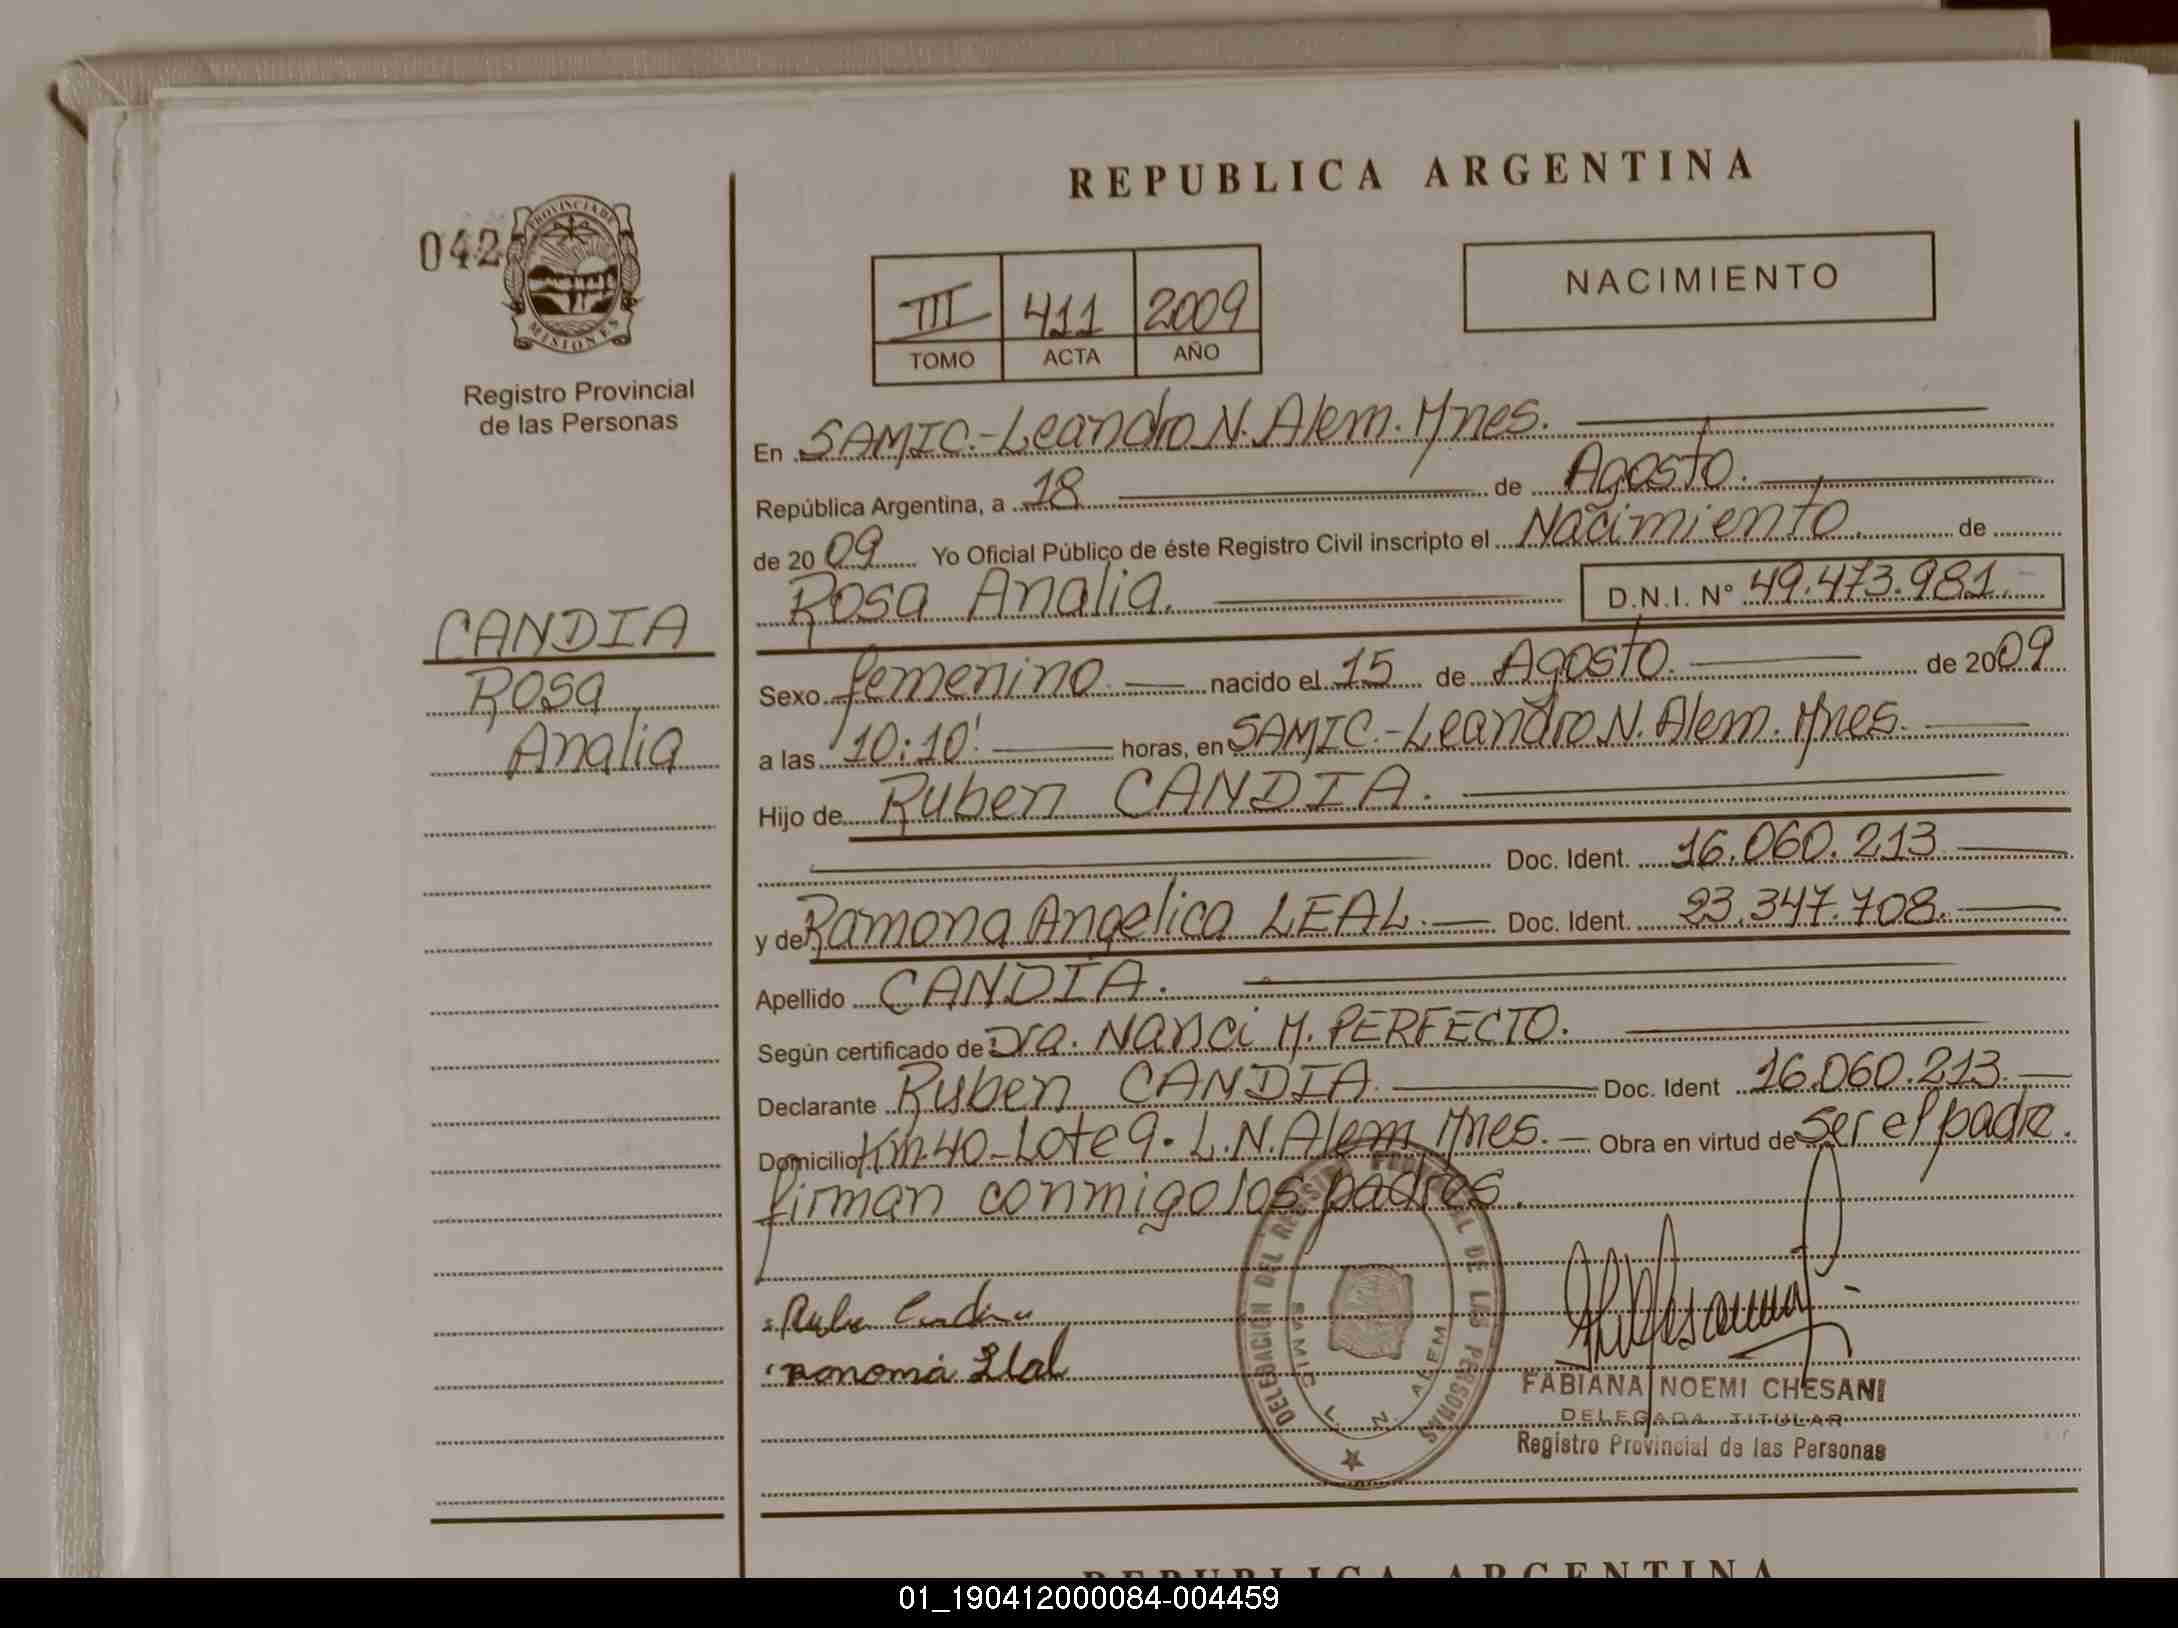 REPUBLICA ARGENTINA
042
PROVINCIA DE
MISIONES
Registro Provincial
de las Personas
III 411 2009
TOMO ACTA AÑO
NACIMIENTO
En SAMIC.-Leandro N. Alem. Mnes.
República Argentina, a 18 de Agosto.
de 2009 Yo Oficial Público de éste Registro Civil inscripto el Nacimiento. de
Rosa Analia. D.N.I. Nº 49.473.981.-
CANDIA
Rosa
Analia
Sexo femenino nacido el 15 de Agosto. de 2009
a las 10:10' horas, en SAMIC.-Leandro N. Alem. Mnes.
Hijo de Ruben CANDIA.
Doc. Ident. 16.060.213
y de Ramona Angelica LEAL. Doc. Ident. 23.347.708.
Apellido CANDIA.
Según certificado de Dra. Nanci M. PERFECTO.
Declarante Ruben CANDIA. Doc. Ident 16.060.213.
Domicilio Km.40-Lote 9. L.N.Alem Mnes. Obra en virtud de ser el padre.
firman conmigo los padres.
DELEGACION DEL REGISTRO PROVINCIAL DE LAS PERSONAS
SAMIC L. N. ALEM
Ruben Candia
Ramona Leal
FABIANA NOEMI CHESANI
DELEGADA TITULAR
Registro Provincial de las Personas
REPUBLICA ARGENTINA
01_190412000084-004459